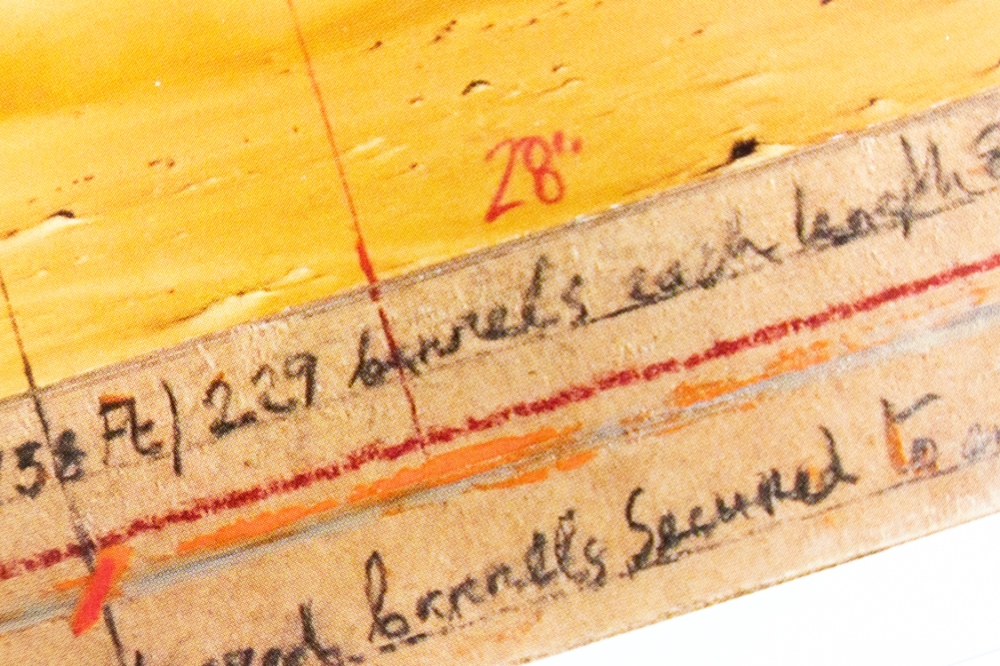 28"
Ft) 229 barrels each length
barrells Secured to